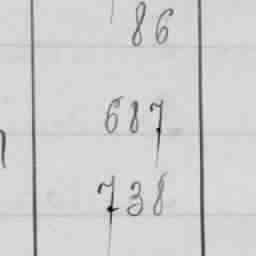 86
687
738